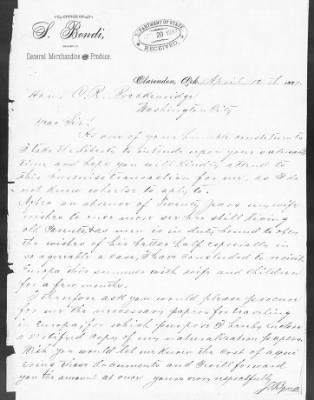 OFFICE OF
S. Bondi,
DEALER IN
General Merchandise and Produce.
DEPARTMENT OF STATE
20 1887
RECEIVED
Clarendon, Ark. April 12th 1887
Hon. C. R. Breckenridge
Washington City
Dear Sir!
As one of your humble constituents
I take the liberty to intrude upon your valuable
time and hope you will kindly attend to
this business transaction for me, as I do
not know wherelse to apply to.
After an absence of Twenty years my wife
wishes to once more see her still living
old Parents & as man is in duty bound to obey
the wishes of his better half especially in
so agreable a case, I have concluded to visit
Europe this summer with wife and Children
for a few months.
I therefore ask you would please procure
for me the necessary papers for traveling
in Europe, for which purpose I hereby inclose
a certified copy of my naturalization papers.
Wish you would let me know the cost of aqui
ring these documents and I will forward
you the amount at once yours very respectfully
S Bondi